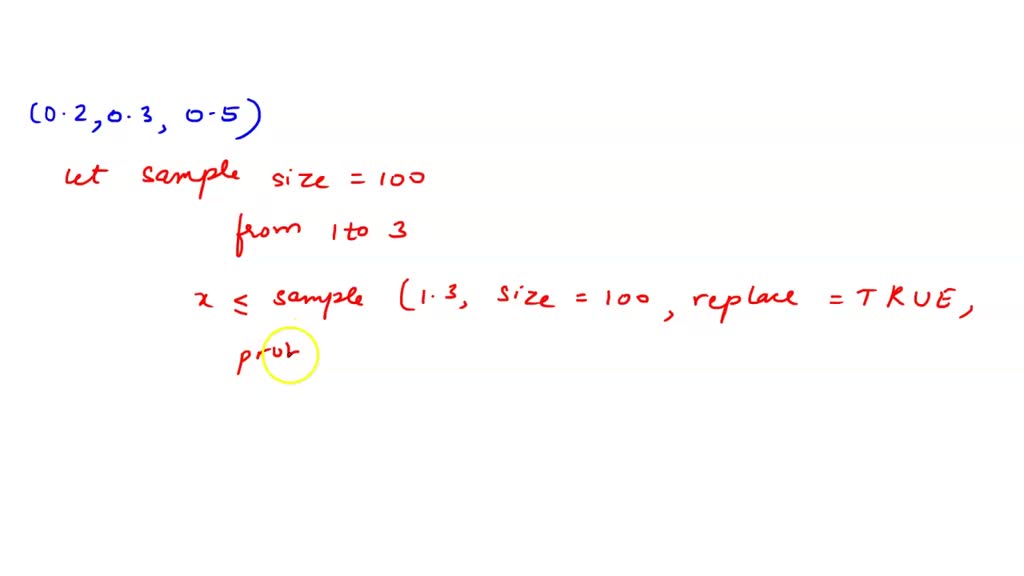 (0.2, 0.3, 0.5)
let sample size = 100
from 1 to 3
x ≤ sample (1.3, size = 100, replace = TRUE,
prob